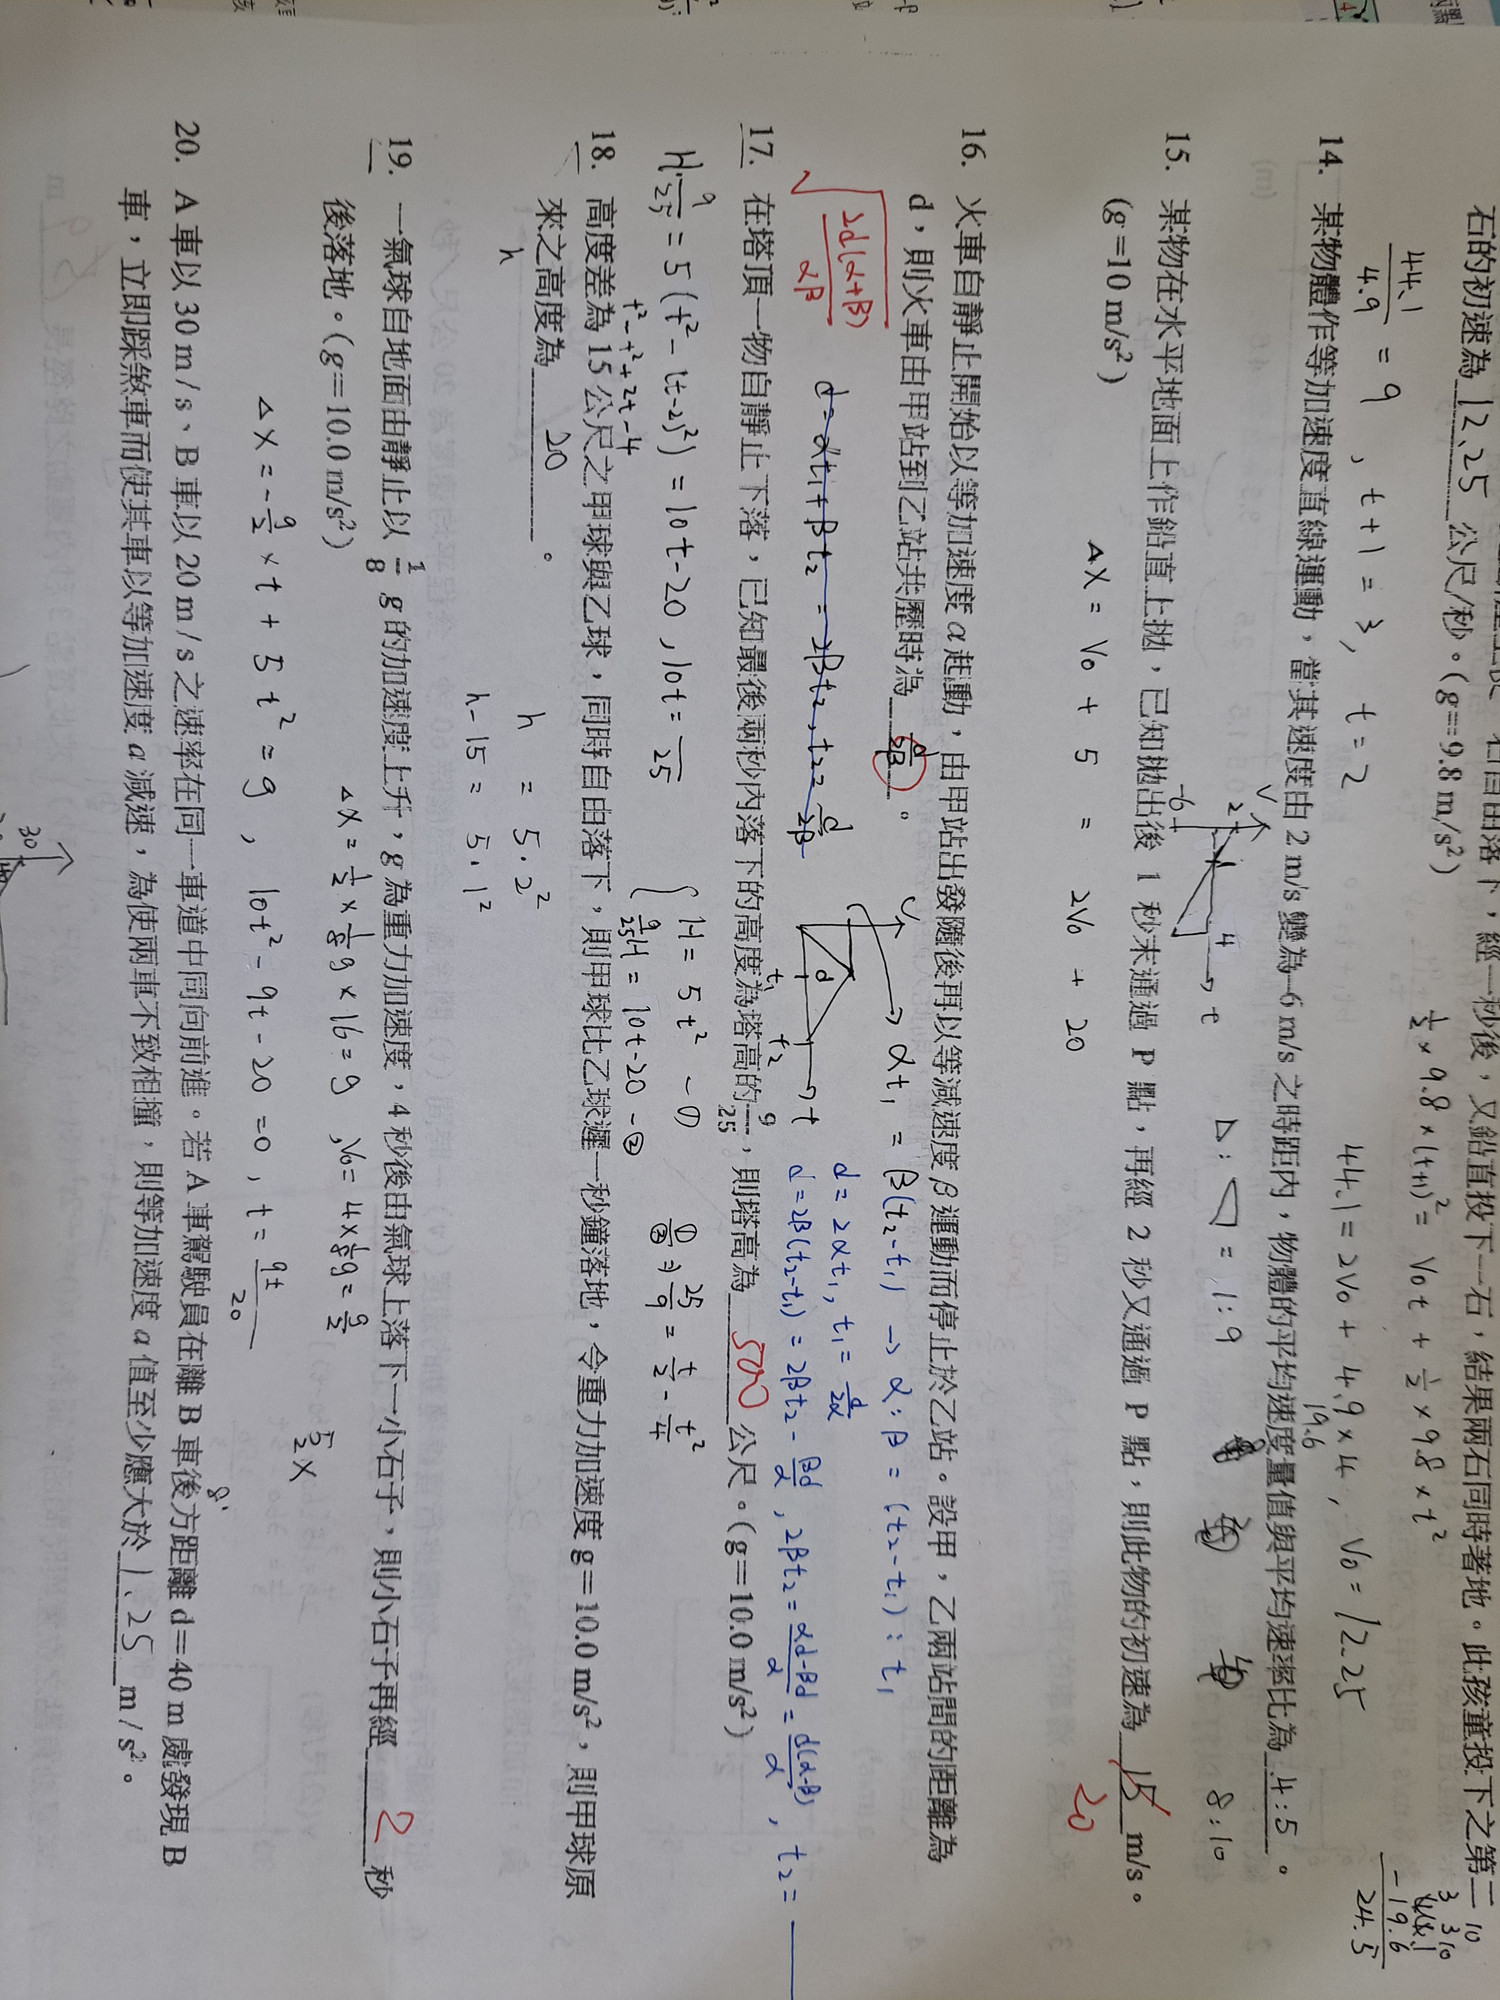 石的初速為 12.25 公尺/秒。(g=9.8 m/s²)
44.1/4.9 = 9 , t+1 = 3, t = 2
½ × 9.8 × (t+1)² = V₀t + ½ × 9.8 × t²
44.1 = 2V₀ + 4.9 × 4 , V₀ = 12.25
-19.6
24.5
14. 某物體作等加速度直線運動，當其速度由 2 m/s 變為–6 m/s 之時距內，物體的平均速度量值與平均速率比為 4:5 。
V
2
-6
4
t
= 1:9
19.6
8:10
15. 某物在水平地面上作鉛直上拋，已知拋出後 1 秒末通過 P 點，再經 2 秒又通過 P 點，則此物的初速為 15 m/s。
(g=10 m/s²)
20
ΔX = V₀ + 5 = 2V₀ + 20
16. 火車自靜止開始以等加速度 α 起動，由甲站出發隨後再以等減速度 β 運動而停止於乙站。設甲，乙兩站間的距離為
d，則火車由甲站到乙站共歷時為 d/2β 。
√(2d(α+β)/αβ)
d = αt₁ + βt₂ = 2βt₂, t₂ = d/2β
V
d
t₁
t₂
t
αt₁ = β(t₂-t₁) → α:β = (t₂-t₁):t₁
d = 2αt₁, t₁ = d/2α
d = 2β(t₂-t₁) = 2βt₂ - βd/α , 2βt₂ = αd-βd/α = d(α-β)/α , t₂ =
17. 在塔頂一物自靜止下落，已知最後兩秒內落下的高度為塔高的 9/25，則塔高為 500 公尺。(g=10.0 m/s²)
H·9/25 = 5(t²-(t-2)²) = 10t-20 , 10t = /25
t²-t²+2t-4
H = 5t² - ①
9/25H = 10t-20 - ②
①/② ⇒ 25/9 = t/2 - t²/4
18. 高度差為 15 公尺之甲球與乙球，同時自由落下，則甲球比乙球遲一秒鐘落地，令重力加速度 g=10.0 m/s²，則甲球原
來之高度為 20 。
h
h = 5·2²
h-15 = 5·1²
19. 一氣球自地面由靜止以 1/8 g 的加速度上升，g 為重力加速度，4 秒後由氣球上落下一小石子，則小石子再經 2 秒
後落地。(g=10.0 m/s²)
ΔX = ½ × ⅛g × 16 = g , V₀ = 4×⅛g = g/2
ΔX = -g/2 × t + 5t² = g , 10t² - gt - 20 = 0 , t = g±/20
5/2 X
20. A 車以 30 m / s、B 車以 20 m / s 之速率在同一車道中同向前進。若 A 車駕駛員在離 B 車後方距離 d=40 m 處發現 B
車，立即踩煞車而使其車以等加速度 a 減速，為使兩車不致相撞，則等加速度 a 值至少應大於 1.25 m / s²。
8
30